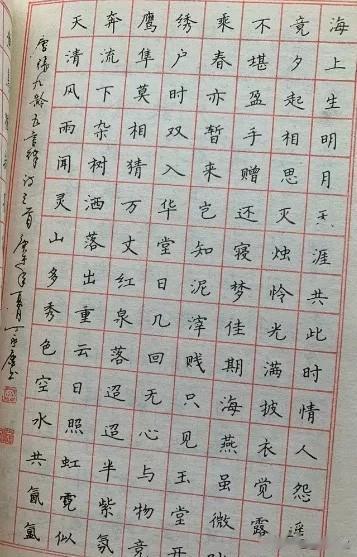 海上生明月天涯共此时情人怨遥
竟夕起相思灭烛怜光满披衣觉露
不堪盈手赠还寝梦佳期海燕虽微
乘春亦暂来岂知泥滓贱只见玉堂开
绣户时双入华堂日几回无心与物竞
鹰隼莫相猜万丈红泉落迢迢半紫氛
奔流下杂树洒落出重云日照虹霓似
天清风雨闻灵山多秀色空水共氤氲
唐張九龄五言律诗三首